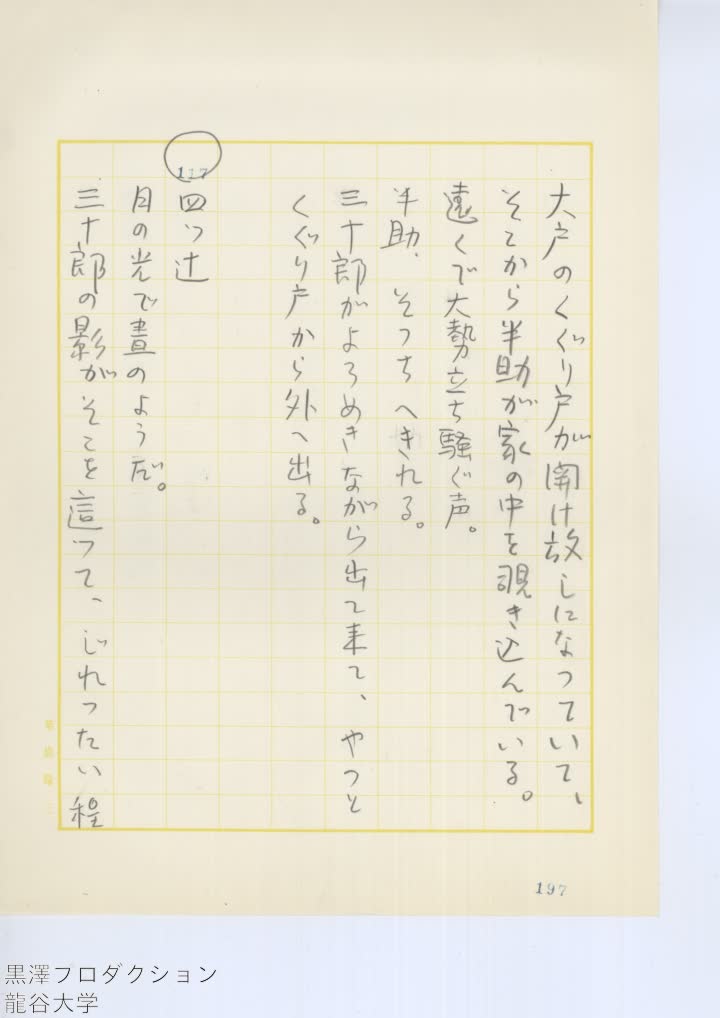 大戸のくぐり戸が開け放しになつていて、
そこから半助が家の中を覗き込んでいる。
遠くで大勢立ち騒ぐ声。
半助、そつちへきれる。
三十郎がよろめきながら出て来て、やつと
くぐり戸から外へ出る。
117
四ツ辻
月の光で昼のようだ。
三十郎の影がそこを這つて、じれつたい程
197
黒澤プロダクション
龍谷大学